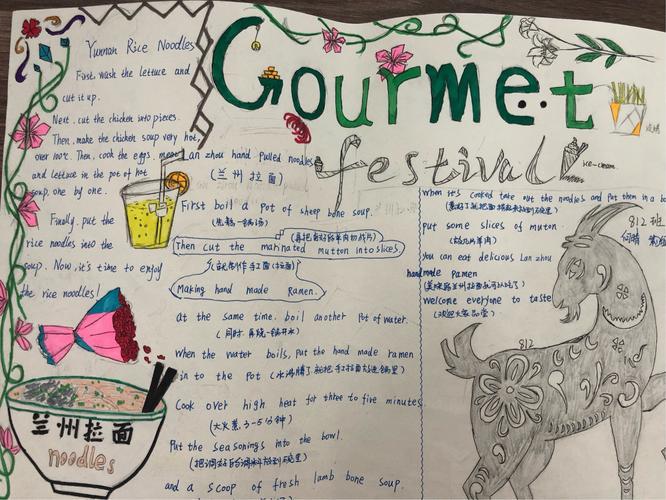 Gourmet
festival
ice-cream
Yunnan Rice Noodles
First, wash the lettuce and
cut it up.
Next, cut the chicken into pieces.
Then, make the chicken soup very hot,
over 100℃. Then, cook the eggs, meat
and lettuce in the pot of hot
soup, one by one.
Finally, put the
rice noodles into the
soup. Now, it's time to enjoy
the rice noodles!
兰州拉面
noodles
Lan zhou hand Pulled noodles
(兰州拉面)
First boil a pot of sheep bone soup.
Then cut the marinated mutton into slices.
Making hand made Ramen.
At the same time, boil another pot of water.
When the water boils, put the hand made ramen
in to the pot
Cook over high heat for three to five minutes
(大火煮3-5分钟)
Put the seasonings into the bowl.
and a scoop of fresh lamb bone soup.
When it's cooked take out the noodles and put them in a bo
put some slices of muton.
you can eat delicious Lan zhou
hand made ramen
welcome everyone to taste
(欢迎大家品尝)
812班
812